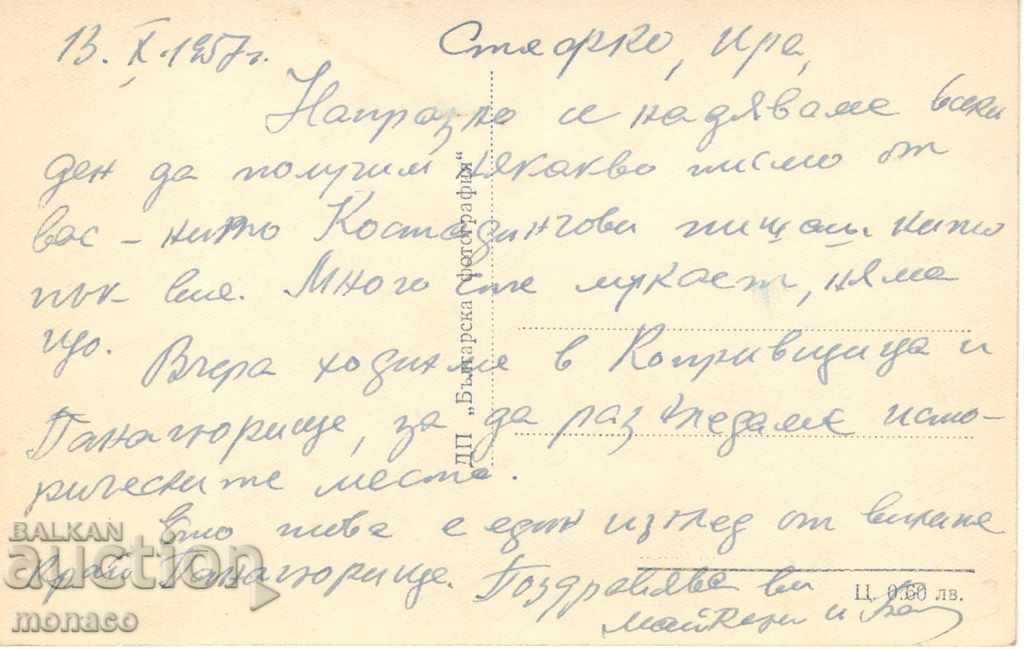 13. X. 1957г.
Стефко, Ира,
Напразно се надяваме всеки
ден да получим някакво писмо от
вас – нито Костадингови пишат, нито
пък вие. Много сте мукает, няма
що.
Вчера ходихме в Копривщица и
Панагюрище, за да разгледаме исто-
рическите места.
Ето това е един изглед от
край Панагюрище. Поздравява ви
майка ви и
ДП „Българска фотография“
Ц. 0.60 лв.
BALKAN
auction
monaco